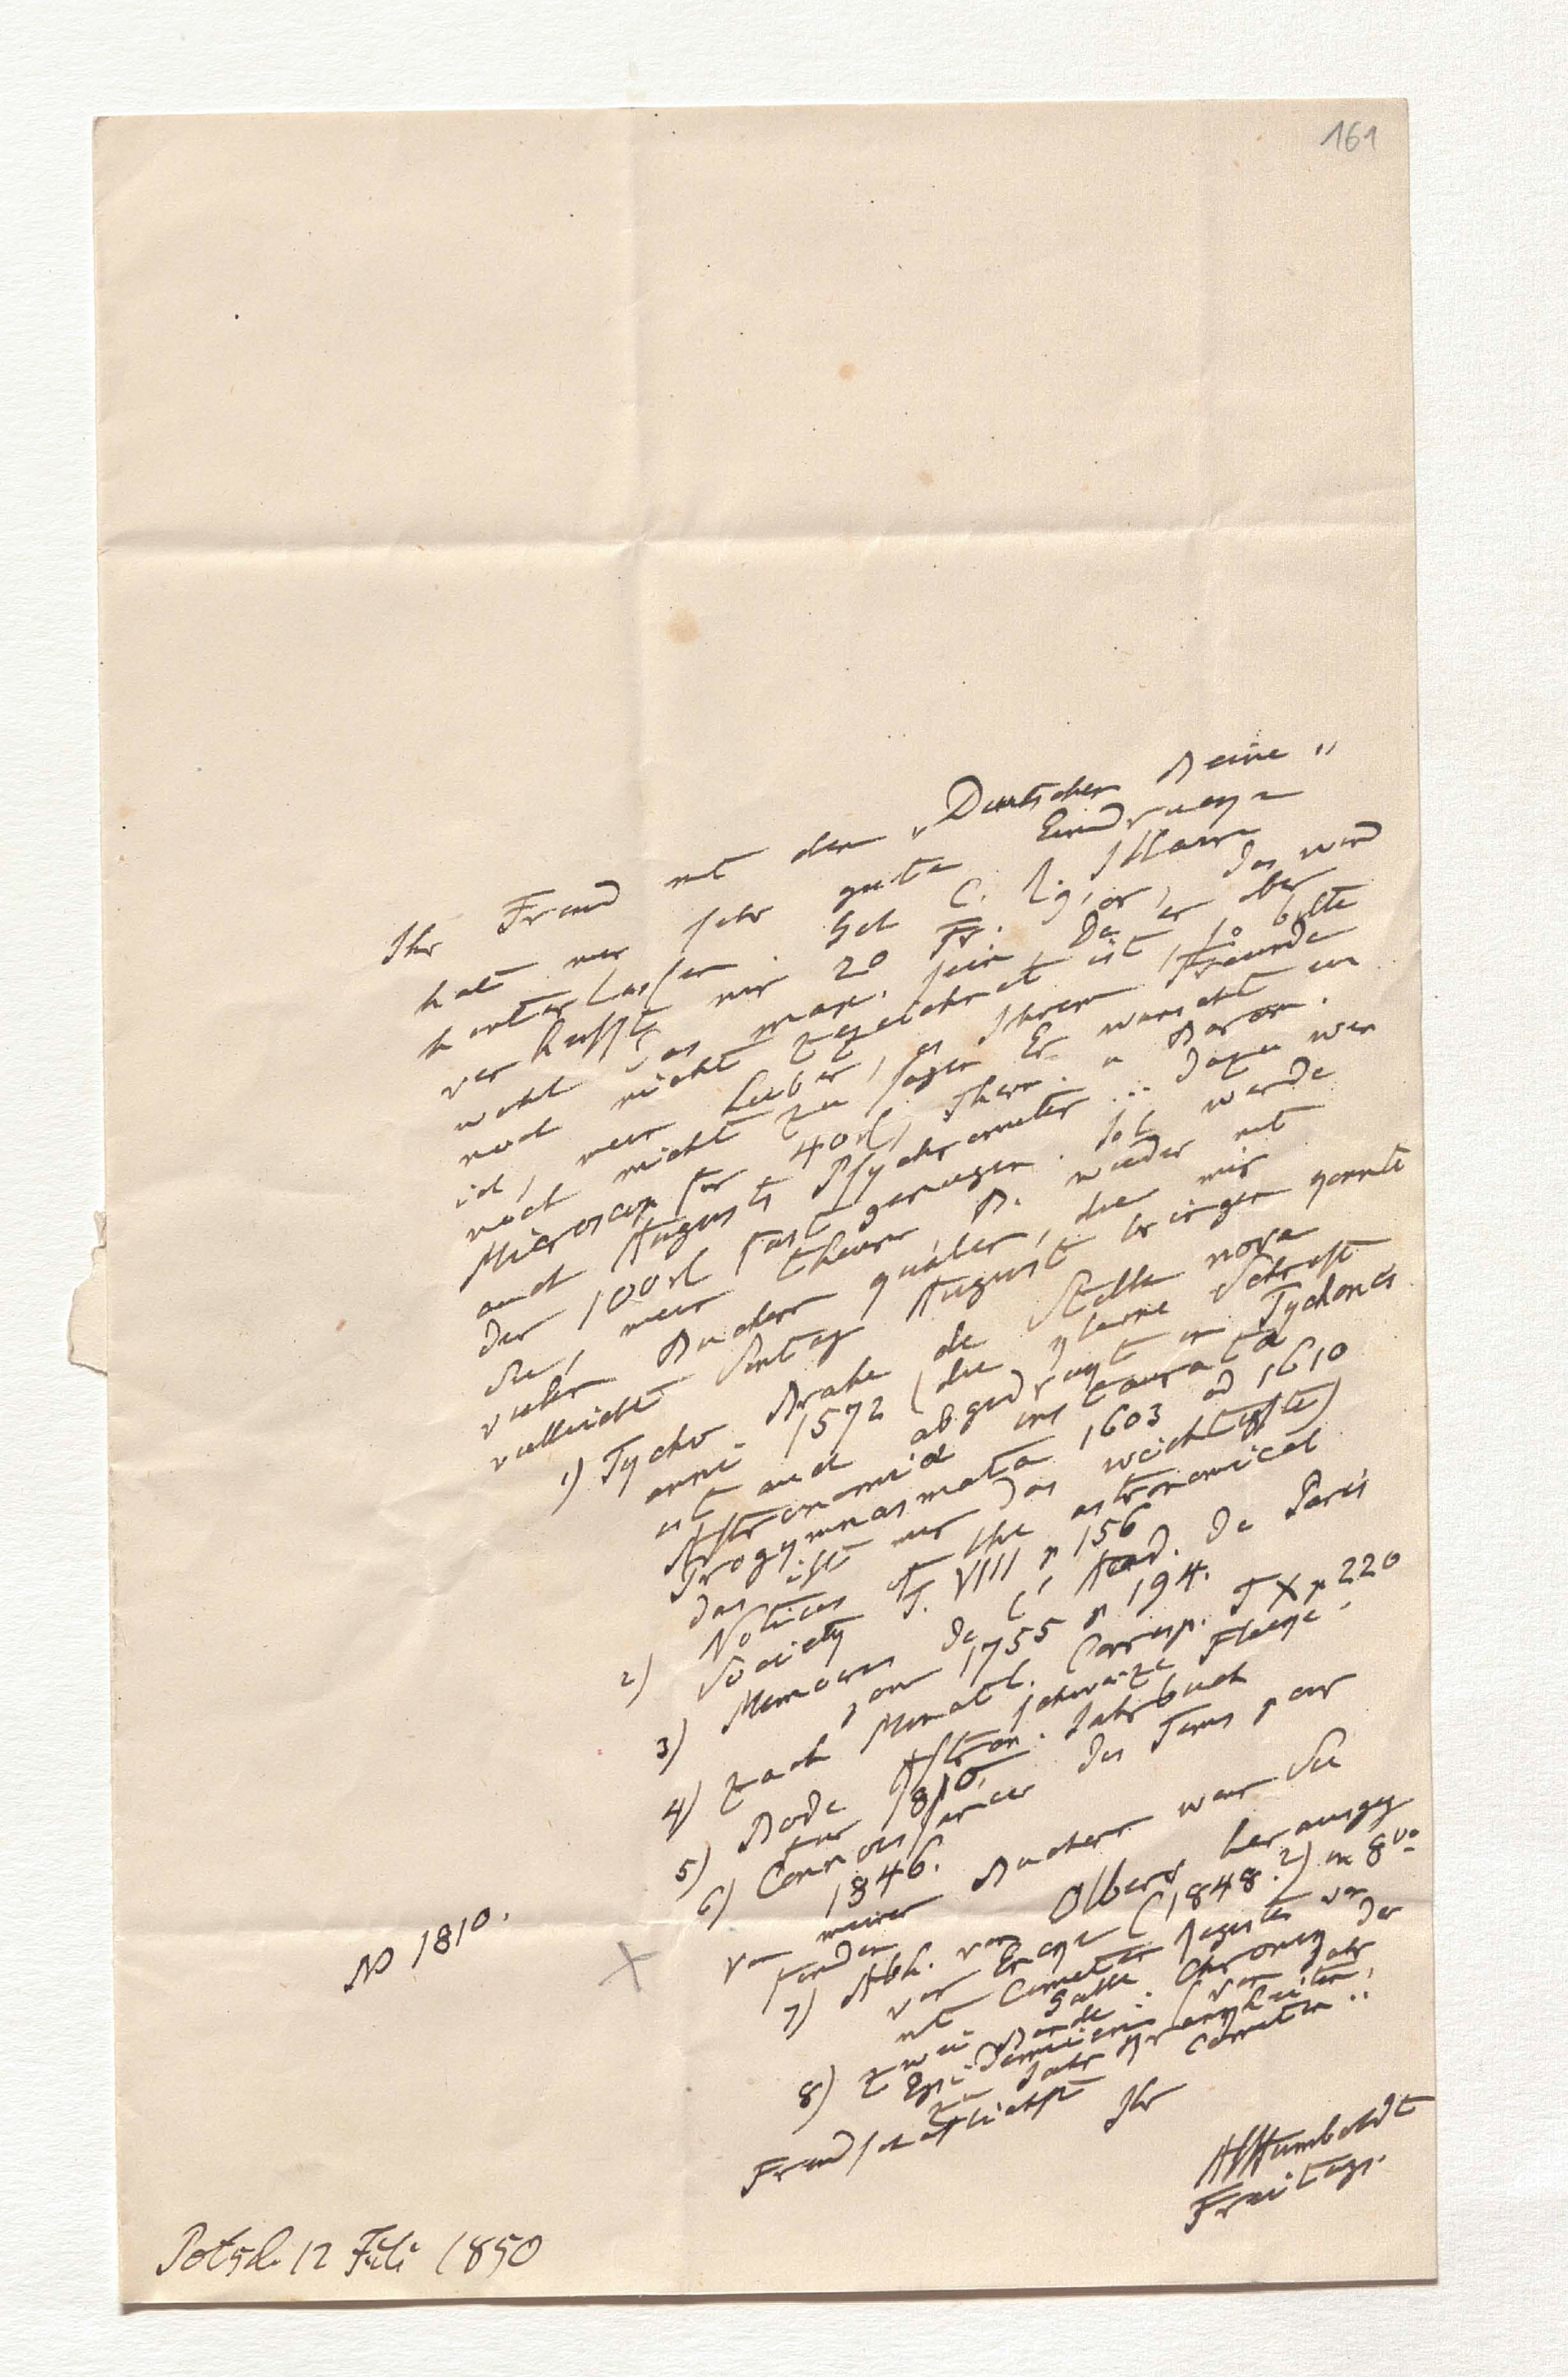 161
Ihr Freund mit dem „Deutschen Beine"
hat mir sehr guten Eindruck
hinterlassen. Geh C. R. Illaire
verhieß mir 20 Fr. das wird
wohl das max. sein, Da er aber
noch nicht gezeichnet ist, so bitte
ich, mein Lieber, es Ihrem Freunde
noch nicht zu sagen. Er wünscht ein
Microscop für 40 rl, Therm. u Barom.
auch Augusts Psychrometer ... dazu wer
den 100 rl fast genügen. Ich werde
Sie, mein theurer B. wieder mit
vielen Büchern quälen, die mir
vielleicht Sontag August bringen könnte
1) Tycho Brahe de Stella nova
anni 1572 (die kleine Schrift
ist auch abgedrukt in Tychonis
Astronomiæ instaurata
Progymnasmata 1603 od 1610
das ist mir das wichtigste)
2) Notices of the astronomical
Society T. VIII p 156
3) Memoires de l'Acad. de Paris
pour 1755 p 194.
4) Zach Monatl. Corresp. T X p 220
schwarze Flecke.
5) Bode Astron. Jahrbuch
für 1810.
6) Connoissance des Tems pour
1846.
Von meinen Büchern war Sie
finden
7) Abh. von Olbers herausgeg
von Encke (1848?) in 8vo
mit Cometen Register von
Galle
8) zwei Bände: Chronik der
Epidemieen (von Jahr
zu Jahr Krankheiten,
Cometen ..
Freundschaftlichst Ihr
AvHumboldt
Freitags.
No 1810.
Potsd. 12 Juli 1850